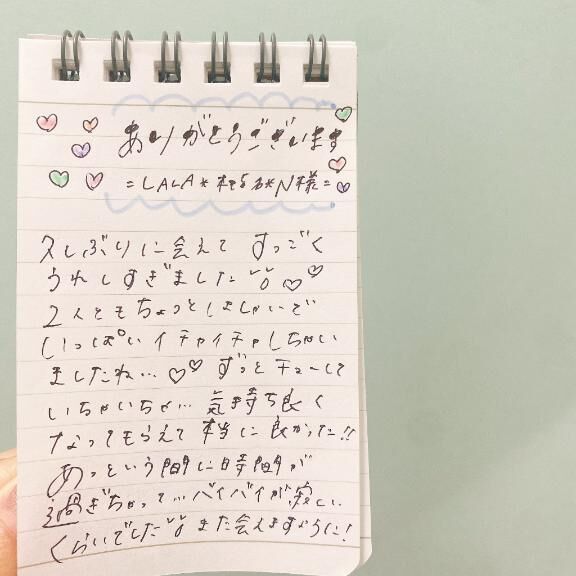 ありがとうございます
=LALA*
*N様=
久しぶりに会えて すっごく
うれしすぎました
2人ともちょっと
いっぱい イチャイチャしちゃい
ましたね… ♡♡ ずっとチューして
いちゃいちゃ… 気持ち良く
なってもらえて 本当に良かった!!
あっという間に時間が
過ぎちゃって… バイバイが寂しい
くらいでした また会えますように!